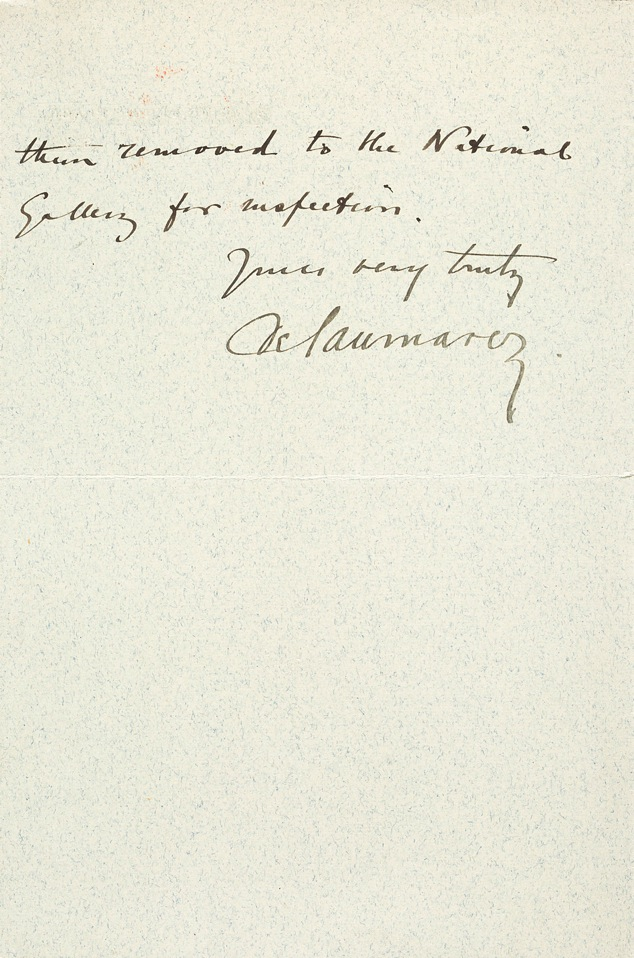 them removed to the National
Gallery for inspection.
Yours very truly
De Saumarez.